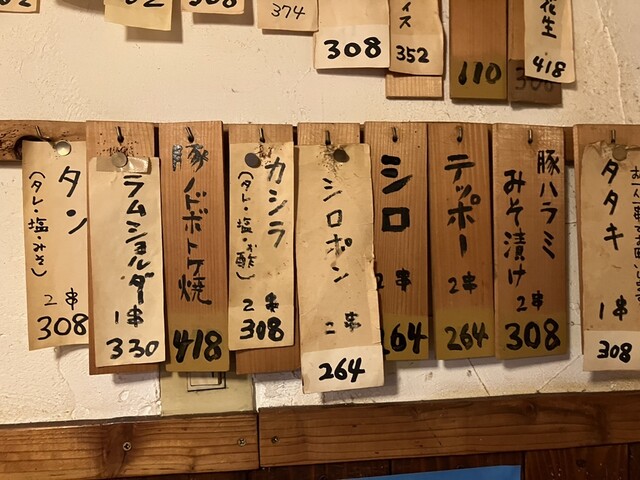 374
308
イス
352
110
418
308
タン
(タレ・塩・みそ)
2串
308
ラムショルダー
1串
330
豚ノドボトケ焼
418
カシラ
(タレ・塩・お酢)
2串
308
シロポン
二串
264
シロ
2串
264
テッポー
2串
264
豚ハラミ
みそ漬け
2串
308
タタキ
1串
308